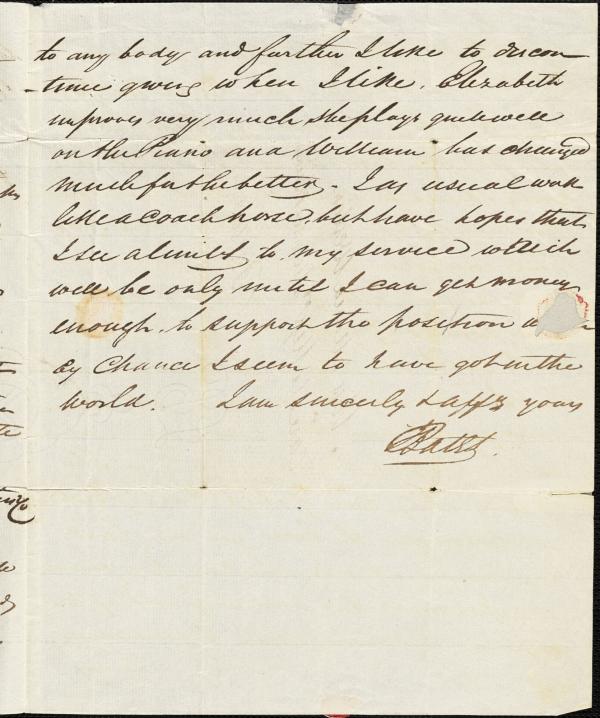 to any body and further I like to discon
-tinue giving when I like. Elizabeth
improves very much she plays quite well
on the Piano and William has changed
much for the better. I as usual work
like a coach horse, but have hopes that
I see a limit to my service which
will be only until I can get money
enough to support the position
by chance I seem to have got in the
world. I am sincerly & affy yours